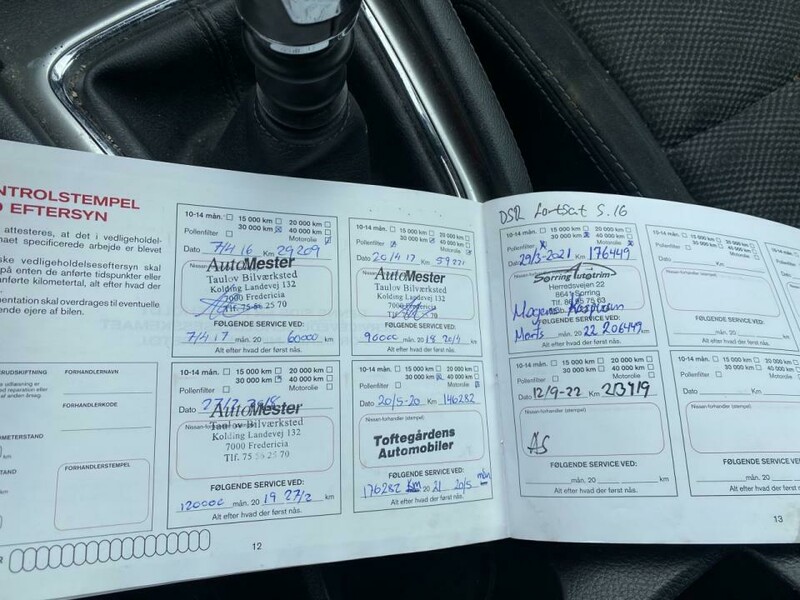 NTROLSTEMPEL
D EFTERSYN
attesteres, at det i vedligeholdel-
naet specificerede arbejde er blevet
ske vedligeholdelseseftersyn skal
på enten de anførte tidspunkter eller
anførte kilometertal, alt efter hvad der
mentation skal overdrages til eventuelle
ende ejere af bilen.
ERUDSKIFTNING
FORHANDLERNAVN
FORHANDLERKODE
OMETERSTAND
STAND
FORHANDLERSTEMPEL
10-14 mån. 15 000 km 20 000 km
30 000 km
Pollenfilter Motorolie
Dato 7/4 16 Km 29209
AutoMester
Taulov Bilværksted
Kolding Landevej 132
7000 Fredericia
Tlf. 75 56 25 70
FØLGENDE SERVICE VED:
7/4 17 60000 km
Alt efter hvad der først nås.
10-14 mån. 15 000 km 20 000 km
30 000 km 40 000 km
Pollenfilter Motorolie
Dato 20/4 17 Km 59221
AutoMester
Taulov Bilværksted
Kolding Landevej 132
7000 Fredericia
25 70
FØLGENDE SERVICE VED:
90000 mån. 20 18 20/4 km
Alt efter hvad der først nås.
10-14 mån. 15 000 km 20 000 km
30 000 km 40 000 km
Pollenfilter Motorolie
Dato 27/2
AutoMester
Taulov Bilværksted
Kolding Landevej 132
7000 Fredericia
Tlf. 75 56 25 70
FØLGENDE SERVICE VED:
120000 mån. 20 19 27/2 km
Alt efter hvad der først nås.
10-14 mån. 15 000 km 20 000 km
30 000 km 40 000 km
Pollenfilter Motorolie
Dato 20/5-20 Km 146282
Nissan-forhandler (stempel)
Toftegårdens
Automobiler
FØLGENDE SERVICE VED:
176282 km 20 21 20/5 mån
Alt efter hvad der først nås.
12
DSR fortsat S.16
10-14 mån. 15 000 km 20 000 km
30 000 km 40 000 km
Pollenfilter Motorolie
Dato 29/3-2021 Km 176449
Sorring Autotrim
Herredsvejen 22
8641 Sorring
Tlf. 86 95 75 63
Mogens
FØLGENDE SERVICE VED:
Marts 22 206449 km
Alt efter hvad der først nås.
10-14 mån. 15 000 km 20 000 km
30 000 km 40 000 km
Pollenfilter Motorolie
Dato Km
Nissan-forhandler (stempel)
FØLGENDE SERVICE VED:
mån. 20 km
Alt efter hvad der først nås.
10-14 mån. 15 000 km 20 000 km
30 000 km 40 000 km
Pollenfilter Motorolie
Dato 12/9-22 Km
Nissan-forhandler (stempel)
AS
FØLGENDE SERVICE VED:
mån. 20 km
Alt efter hvad der først nås.
10-14 mån. 15 000 km 20 000 km
30 000 km 40 000 km
Pollenfilter Motorolie
Dato Km
Nissan-forhandler (stempel)
FØLGENDE SERVICE VED:
mån. 20 km
Alt efter hvad der først nås.
13